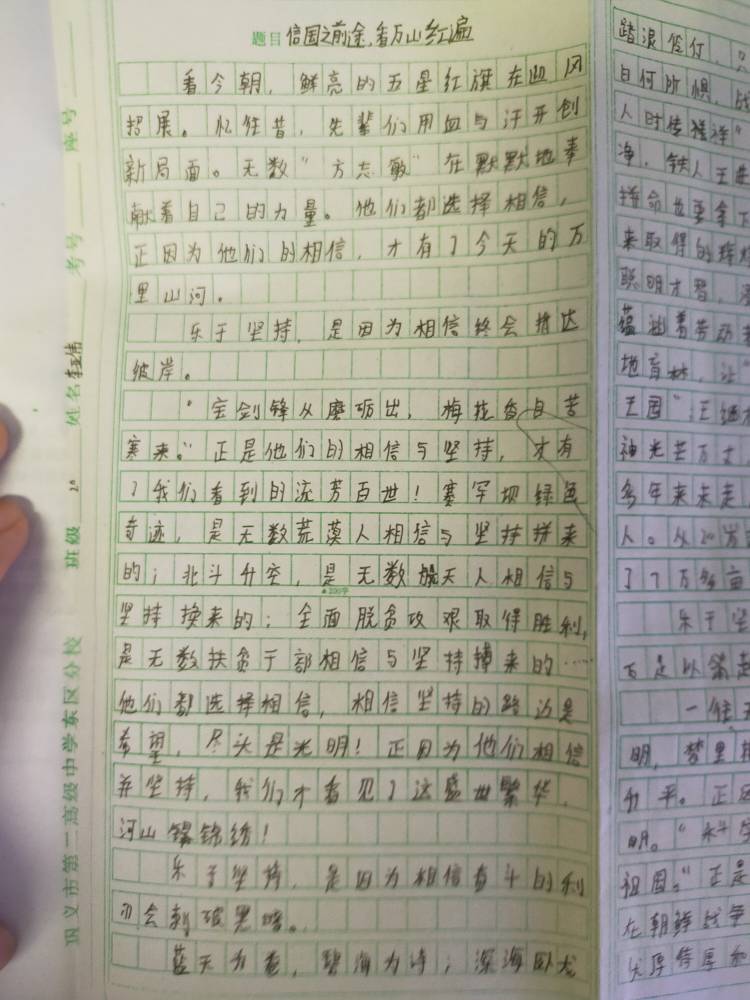 题目 信国之前途,看万山红遍
看今朝,鲜亮的五星红旗在迎风
招展。忆往昔,先辈们用血与汗开创
新局面。无数"方志敏"在默默地奉
献着自己的力量。他们都选择相信,
正因为他们的相信,才有了今天的万
里山河。
乐于坚持,是因为相信终会抵达
彼岸。
"宝剑锋从磨砺出,梅花香自苦
寒来。"正是他们的相信与坚持,才有
了我们看到的流芳百世!塞罕坝绿色
奇迹,是无数荒漠人相信与坚持拼来
的;北斗升空,是无数航天人相信与
200字
坚持换来的;全面脱贫攻艰取得胜利,
是无数扶贫干部相信与坚持搏来的……
他们都选择相信,相信坚持的路边是
希望,尽头是光明!正因为他们相信
并坚持,我们才看见了这盛世繁华,
河山锦绣!
乐于坚持,是因为相信奋斗的利
刃会刺破黑暗。
蓝天为卷,碧海为诗;深海卧龙
巩义市第二高级中学东区分校 班级 20 姓名 考号 座号
踏浪
日何所惧,
人时传
净,铁人王进
拼命也要拿下
来取得的辉
聪明才智,
蕴涵着劳动
地育林,让"
王国";王继
神光芒万丈
多年来未走
人。从20岁
了7万多亩
乐于坚
一往
明,梦里
和平。正因
明。"
祖国。"正是
在朝鲜战争